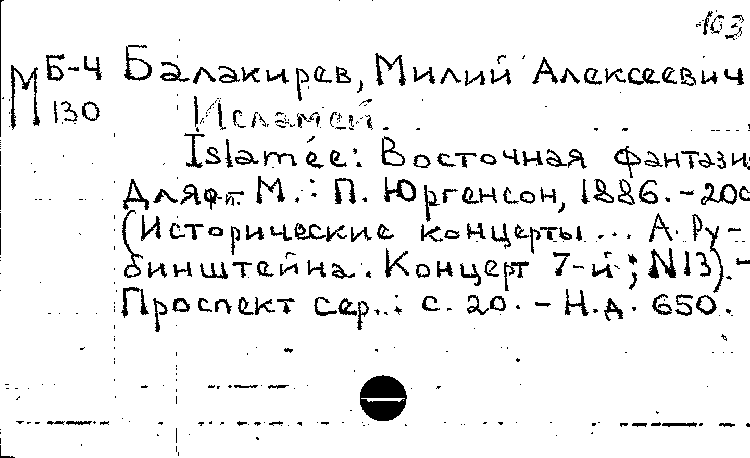 103
М Б-4 Балакирев, Милий Алексеевич
130 Исламей.
Islamée: Восточная фантази
для ф-п. М.: П. Юргенсон, 1886. - 20с
(Исторические концерты... А. Ру-
бинштейна. Концерт 7-й; N13). -
Проспект сер.: с. 20. - Н.д. 650.